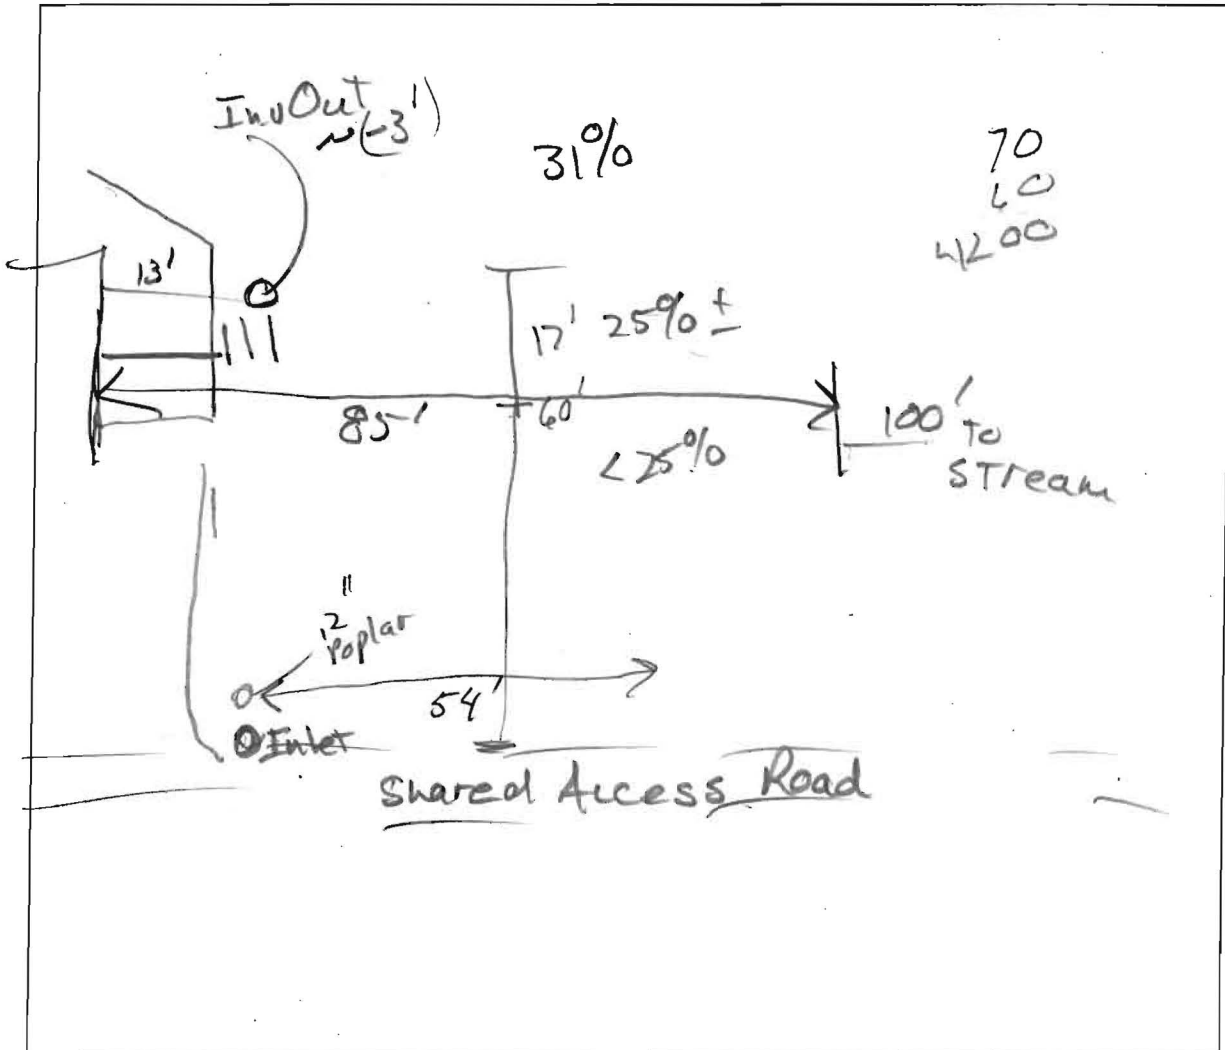 InvOut
~(-3')
31%
70
60
4200
13'
17' 25% ±
85'
60'
<25%
100' To
STream
12"
Poplar
54'
Inlet
Shared Access Road